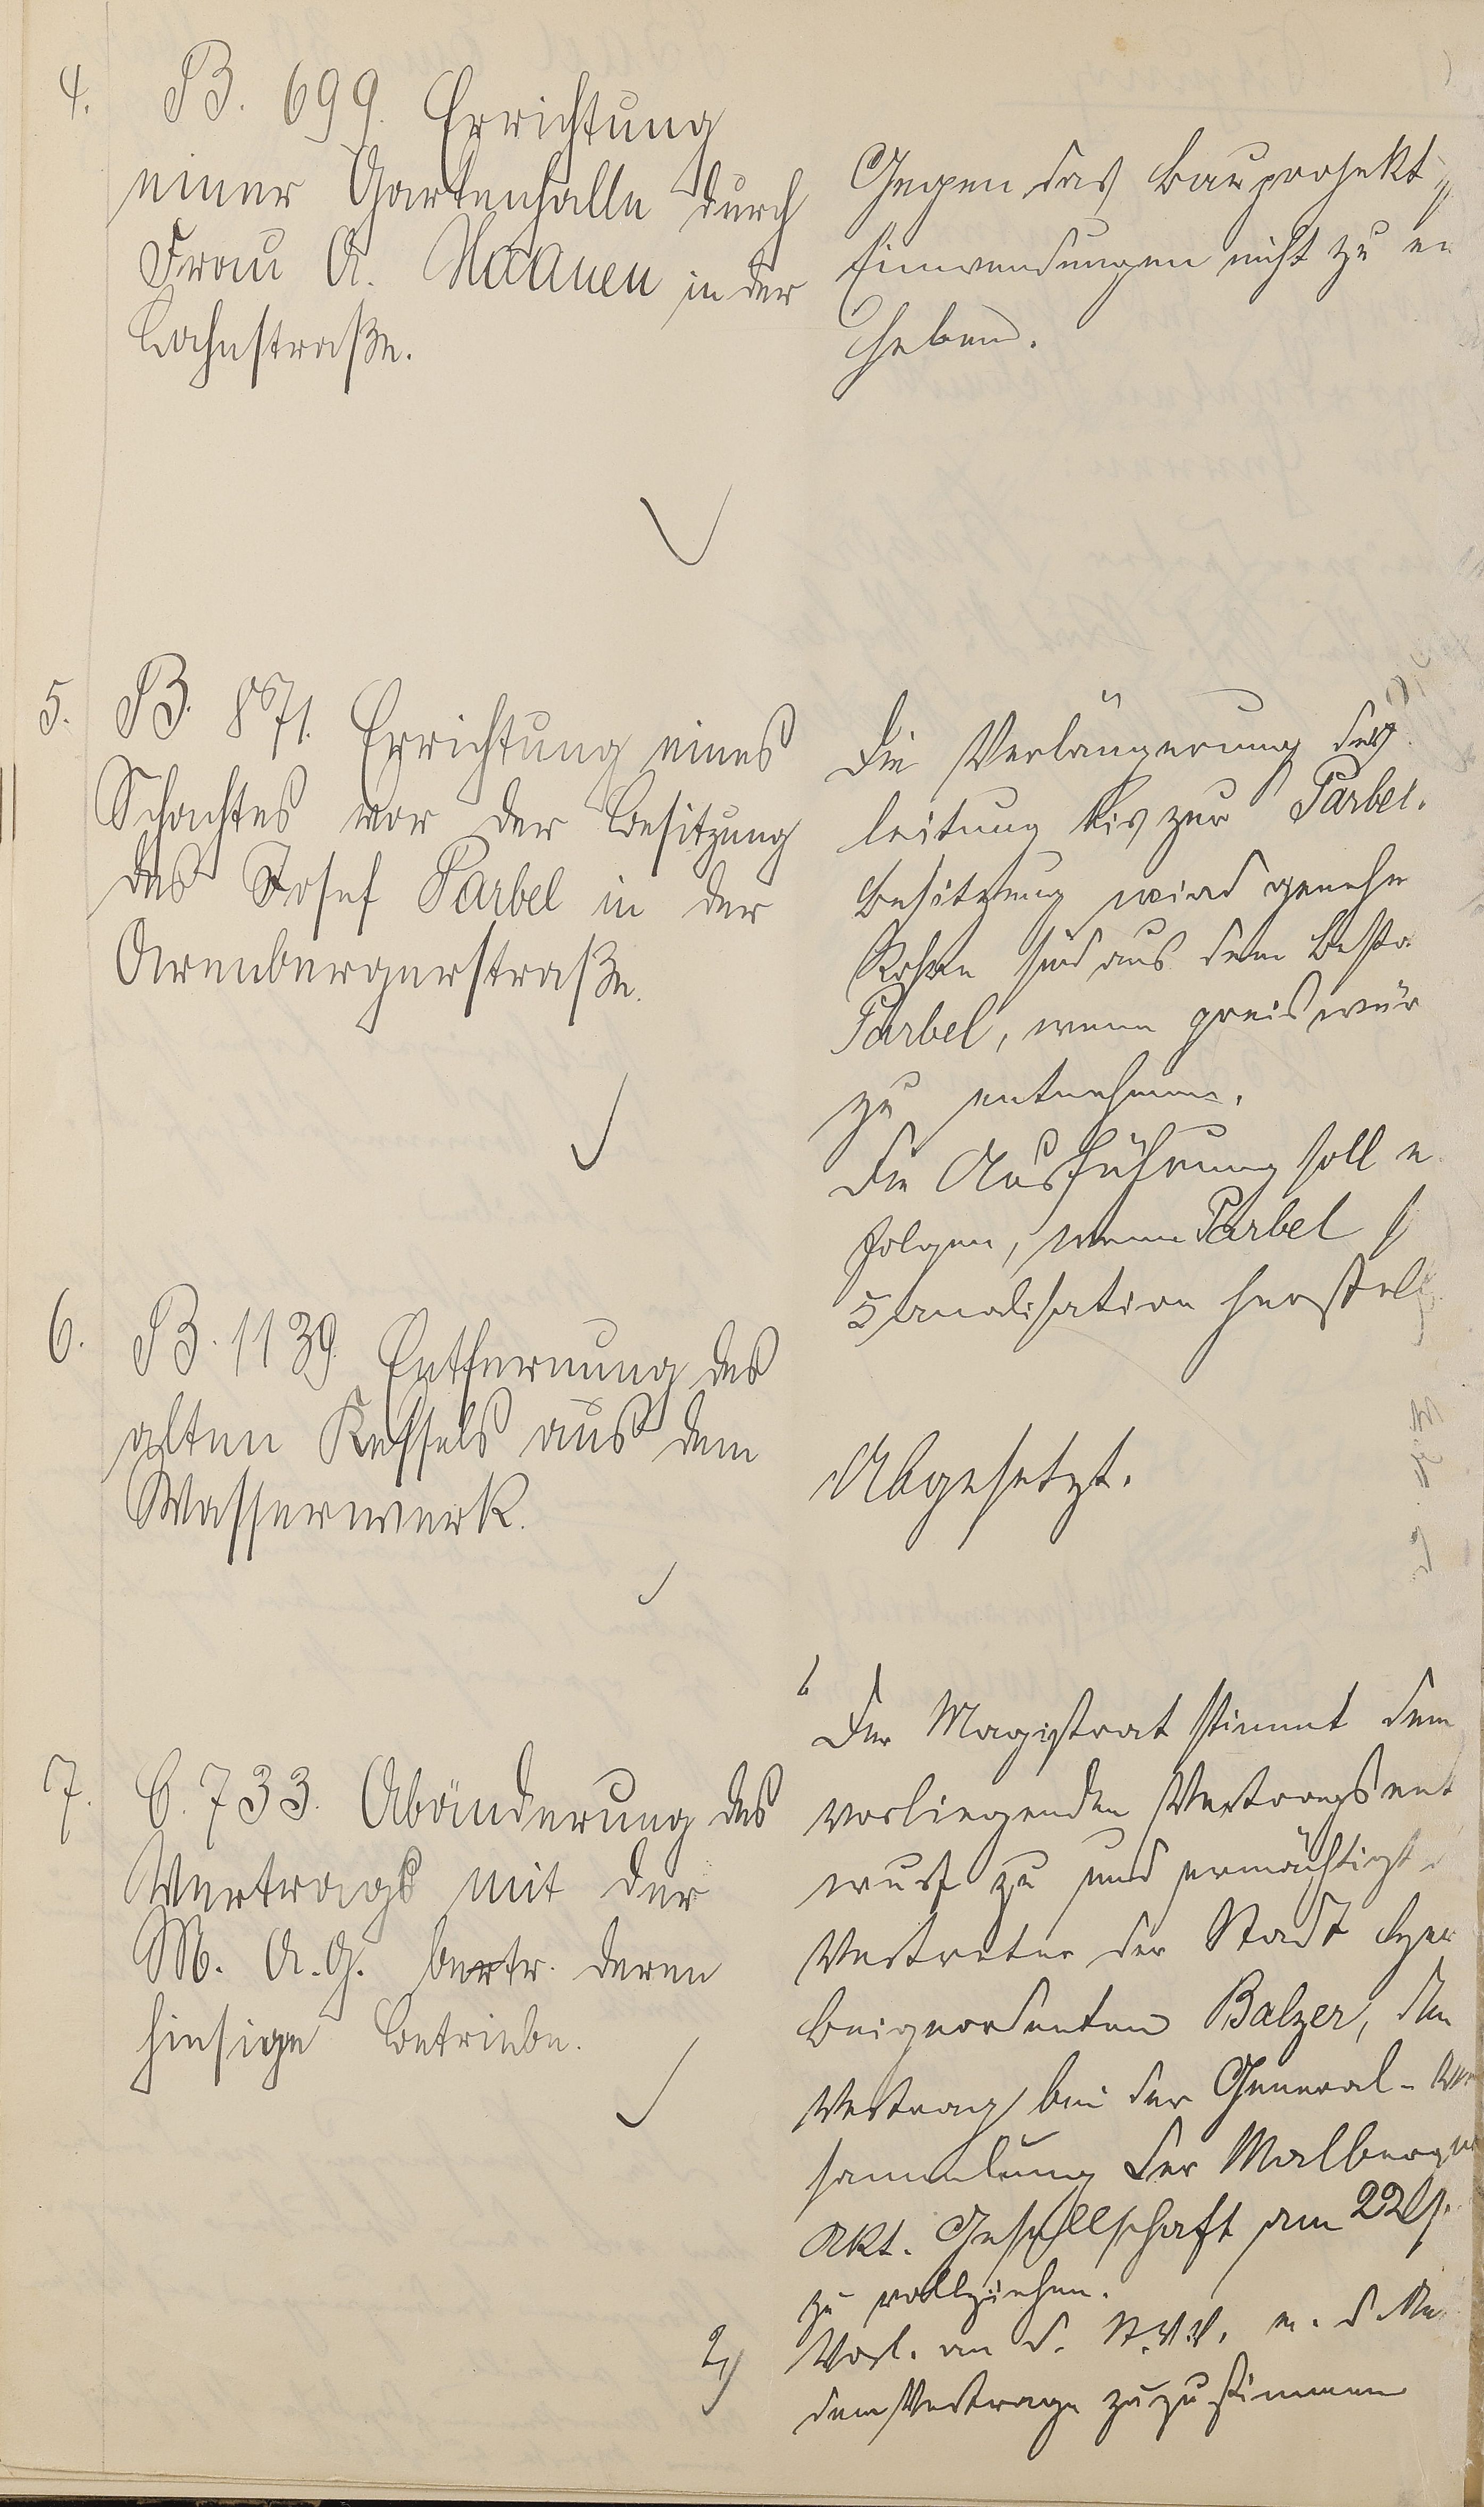 4. B. 699. Errichtung
einer Gartenhalle durch
Frau A. Haanen in der
Lahnstraße.
Gegen das Bauprojekt
Einwendungen nicht zu er
heben.
5. B. 871. Errichtung eines
Schachtes vor der Besitzung
des Josef Parbel in der
Arenbergerstraße.
Die Verlängerung der
leitung bis zur Parbel.
Besitzung wird geneh
Rohre sind aus dem Besta
Parbel, wenn preiswür
zu entnehmen.
Die Ausführung soll e
folgen, wenn Parbel
Kanalisation herstell
6. B. 1139. Entfernung des
alten Kessels aus dem
Wasserwerk.
Abgesetzt.
7. C. 733. Abänderung des
Vertrags mit der
M. A.G. betr. deren
hiesige Betriebe.
Der Magistrat stimmt dem
vorliegenden Vertragsent
wurf zu und ermächtigt
Vertreter der Stadt
Beigeordneten Balzer, den
Vertrag bei der General-Ver
sammlung der Malberg
Akt. Gesellschaft am 22
zu vollziehen.
2) Vorl. an d. St.V.V. m. d.
dem Vertrage zuzustimmen